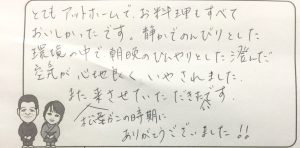 とてもアットホームで、お料理もすべて
おいしかったです。静かでのんびりとした
環境の中で朝晩のひんやりとした澄んだ
空気が心地良く、いやされました。
また来させていただきたいです。
松葉ガニの時期に
ありがとうございました!!